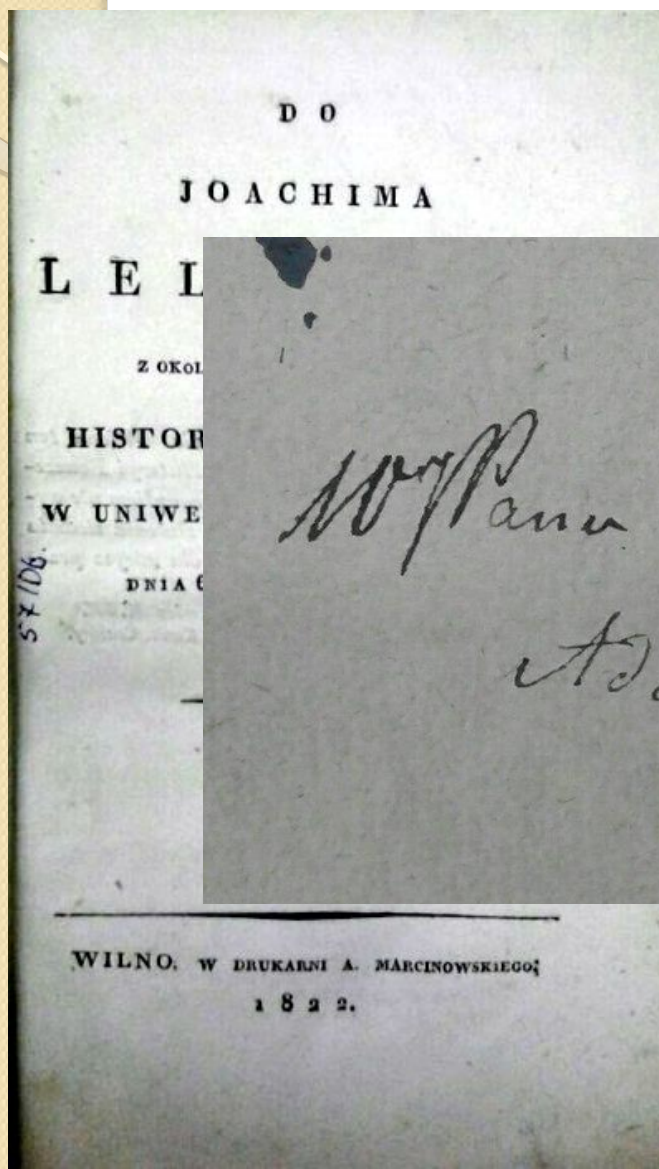 DO
JOACHIMA
LEL
Z OKOL
HISTOR
W UNIWE
DNIA 6
57/D6.
WJPanu
Ada
WILNO, W DRUKARNI A. MARCINOWSKIEGO;
1822.